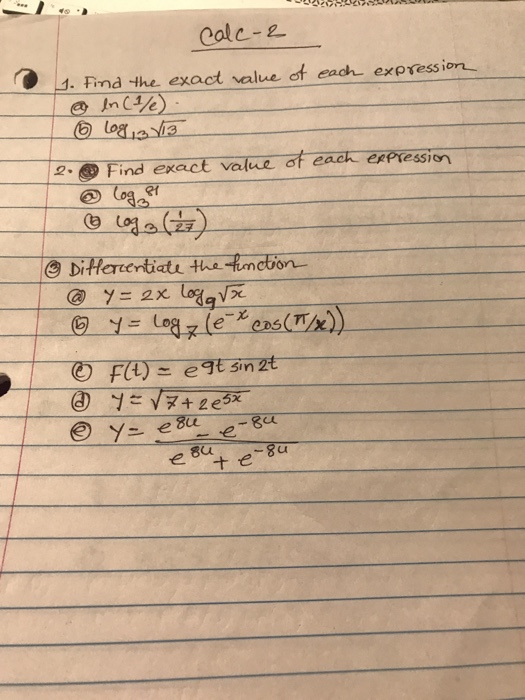 Calc-2
1. Find the exact value of each expression
ⓐ ln(1/e).
ⓑ log₁₃√13
2. Find exact value of each expression
ⓐ log₃81
ⓑ log₃(1/27)
③ Differentiate the function
ⓐ y = 2x log₉√x
ⓑ y = log₇(e⁻ˣ cos(π/x))
ⓒ F(t) = e9t sin2t
ⓓ y = √7+2e⁵ˣ
ⓔ y = e⁸ᵘ - e⁻⁸ᵘ
e⁸ᵘ + e⁻⁸ᵘ